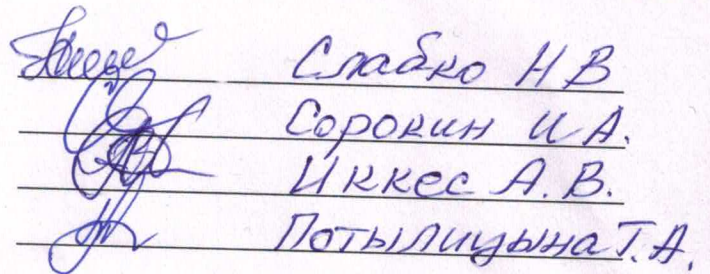 Слабко Н В
Сорокин И А.
Иккес А. В.
Потылицына Т. А.